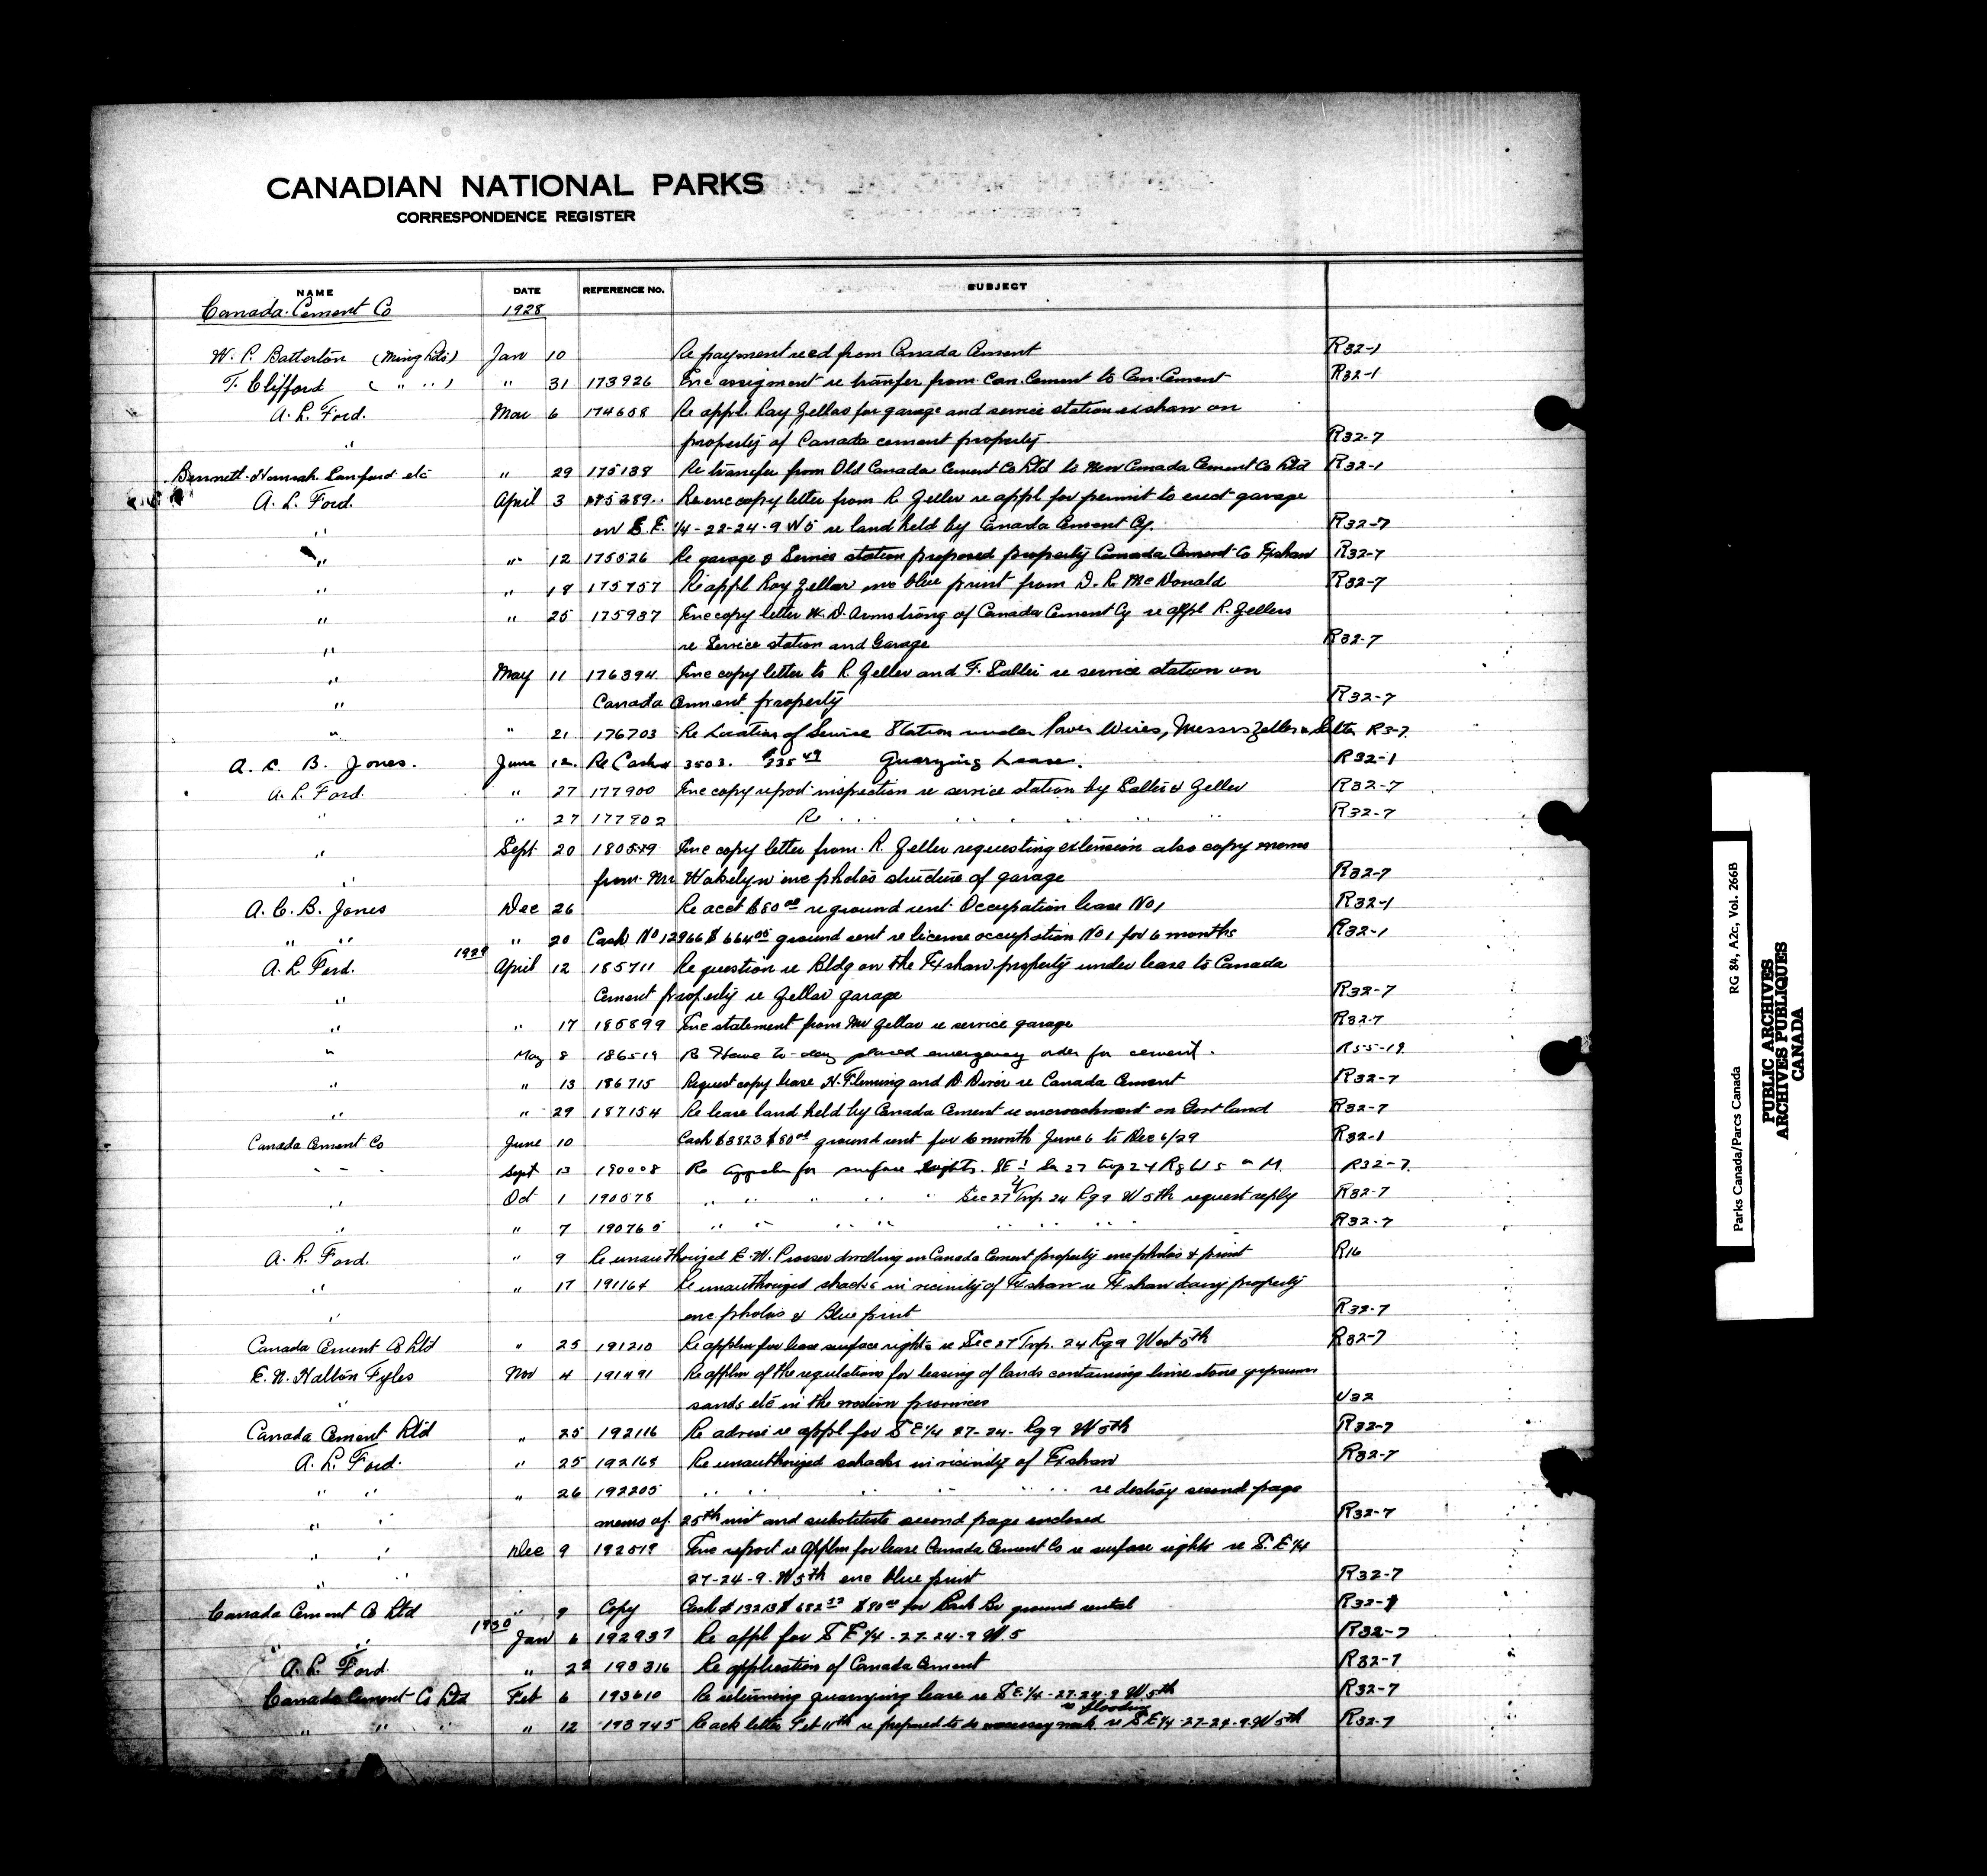 CANADIAN NATIONAL PARKS
CORRESPONDENCE REGISTER
NAME DATE REFERENCE No. SUBJECT
Canada Cement Co 1928
W. P. Batterton (Mining Lds) Jan 10 Re payment recd from Canada Cement R32-1
T. Clifford ( " " ) " 31 173926 Enc assigment re transfer from Can. Cement to Can. Cement R32-1
A. L. Ford. Mar 6 174608 Re appl. Ray Zellar for garage and service station exshaw on
" property of Canada cement property R32-7
Bennett Hannah Sanford etc " 29 175138 Re transfer from Old Canada Cement Co Ltd to New Canada Cement Co Ltd R32-1
A. L. Ford. April 3 175289 Re enc copy letter from R. Zeller re appl for permit to erect garage
" on S.E. 1/4 - 22-24-9 W5 re land held by Canada Cement Cy. R32-7
" " 12 175526 Re garage & Service station proposed property Canada Cement Co Exshaw R32-7
" " 18 175757 Re appl Roy Zellar enc blue print from D. R. McDonald R32-7
" " 25 175937 Enc copy letter W. D. Armstrong of Canada Cement Cy re appl R. Zellers
" re Service station and Garage R32-7
" May 11 176394 Enc copy letter to R. Zeller and F. Salter re service station on
" Canada Cement property R32-7
" " 21 176703 Re Location of Service Station under Power Wires, Messrs Zeller & Salter R3-7
A. C. B. Jones. June 12 Re Cash # 3503. $335 49 Quarrying Lease. R32-1
A. L. Ford. " 27 177900 Enc copy report inspection re service station by Salter & Zeller R32-7
" " 27 177902 Re " " " " " " " R32-7
" Sept 20 180519 Enc copy letter from R. Zeller requesting extension also copy memo
" from Mr Wakelyn enc photos structure of garage R32-7
A. C. B. Jones Dec 26 Re acct $80 00 re ground rent Occupation lease No 1 R32-1
" " " 20 Cash No 12966 $ 664 05 ground rent re license occupation No 1 for 6 months R32-1
1929
A. L. Ford. April 12 185711 Re question re Bldg on the Exshaw property under lease to Canada
" Cement property re Zellar garage R32-7
" " 17 185899 Enc statement from Mr Zellar re service garage R32-7
" May 8 186519 Re Have to-day placed emergency order for cement. R55-19
" " 13 186715 Request copy lease H. Fleming and D. re Canada Cement R32-7
" " 29 187154 Re lease land held by Canada Cement re encroachment on Govt land R32-7
Canada Cement Co June 10 Cash $3823 $80 00 ground rent for 6 month June 6 to Dec 6/29 R32-1
" " " Sept 13 190008 Re Appln for surface rights. SE 1/4 Sec 27 twp 24 Rg W 5 M. R32-7
" Oct 1 190578 " " " " " Sec 27 Twp 24 Rg 9 W 5th request reply R32-7
" " 7 190765 " " " " " " " " R32-7
A. L. Ford. " 9 Re unauthorized E. W. Prosser dwelling on Canada Cement property enc photos & print R16
" " 17 191164 Re unauthorized shacks in vicinity of Exshaw re Exshaw dairy property
" enc photos & Blue print R32-7
Canada Cement Co Ltd " 25 191210 Re appln for lease surface rights re Sec 27 Twp. 24 Rg 9 West 5th R32-7
E. N. Halton Fyles Nov 4 191491 Re appln of the regulations for leasing of lands containing lime stone gypsum
" sands etc in the western provinces U32
Canada Cement Ltd " 25 192116 Re advise re appl for S E 1/4 27-24- Rg 9 W 5th R32-7
A. L. Ford. " 25 192168 Re unauthorized schacks in vicinity of Exshaw R32-7
" " " 26 192205 " " " " " re destroy second page
" " memo of 25th inst and substitute second page enclosed R32-7
" " Dec 9 192519 Enc report re appln for lease Canada Cement Co re surface rights re S. E 1/4
" " 27-24-9-W5th enc blue print R32-7
Canada Cement Co Ltd " 9 Copy Cash # 13213 $ 682 32 $80 00 for ground rental R32-1
1930
" " Jan 6 192937 Re appl for S E 1/4 - 27-24-9 W. 5 R32-7
A. L. Ford. " 22 193316 Re application of Canada Cement R32-7
Canada Cement Co Ltd Feb 6 193610 Re returning quarrying lease re S E 1/4 - 27-24-9 W. 5th R32-7
re flooding
" " " " 12 193745 Re ack letter Feb 11th re prepared to do necessary work re S E 1/4 - 27-24-9-W 5th R32-7
Parks Canada/Parcs Canada RG 84, A2c, Vol. 266B
PUBLIC ARCHIVES
ARCHIVES PUBLIQUES
CANADA